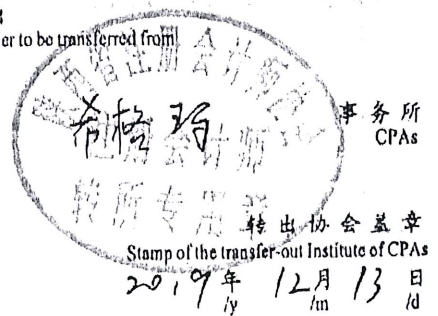 er to be transferred from
陕西省注册会计师协会
希格玛
事务所
CPAs
注册会计师
转所专用章
转出协会盖章
Stamp of the transfer-out Institute of CPAs
2019年 12月 13日
/y /m /d